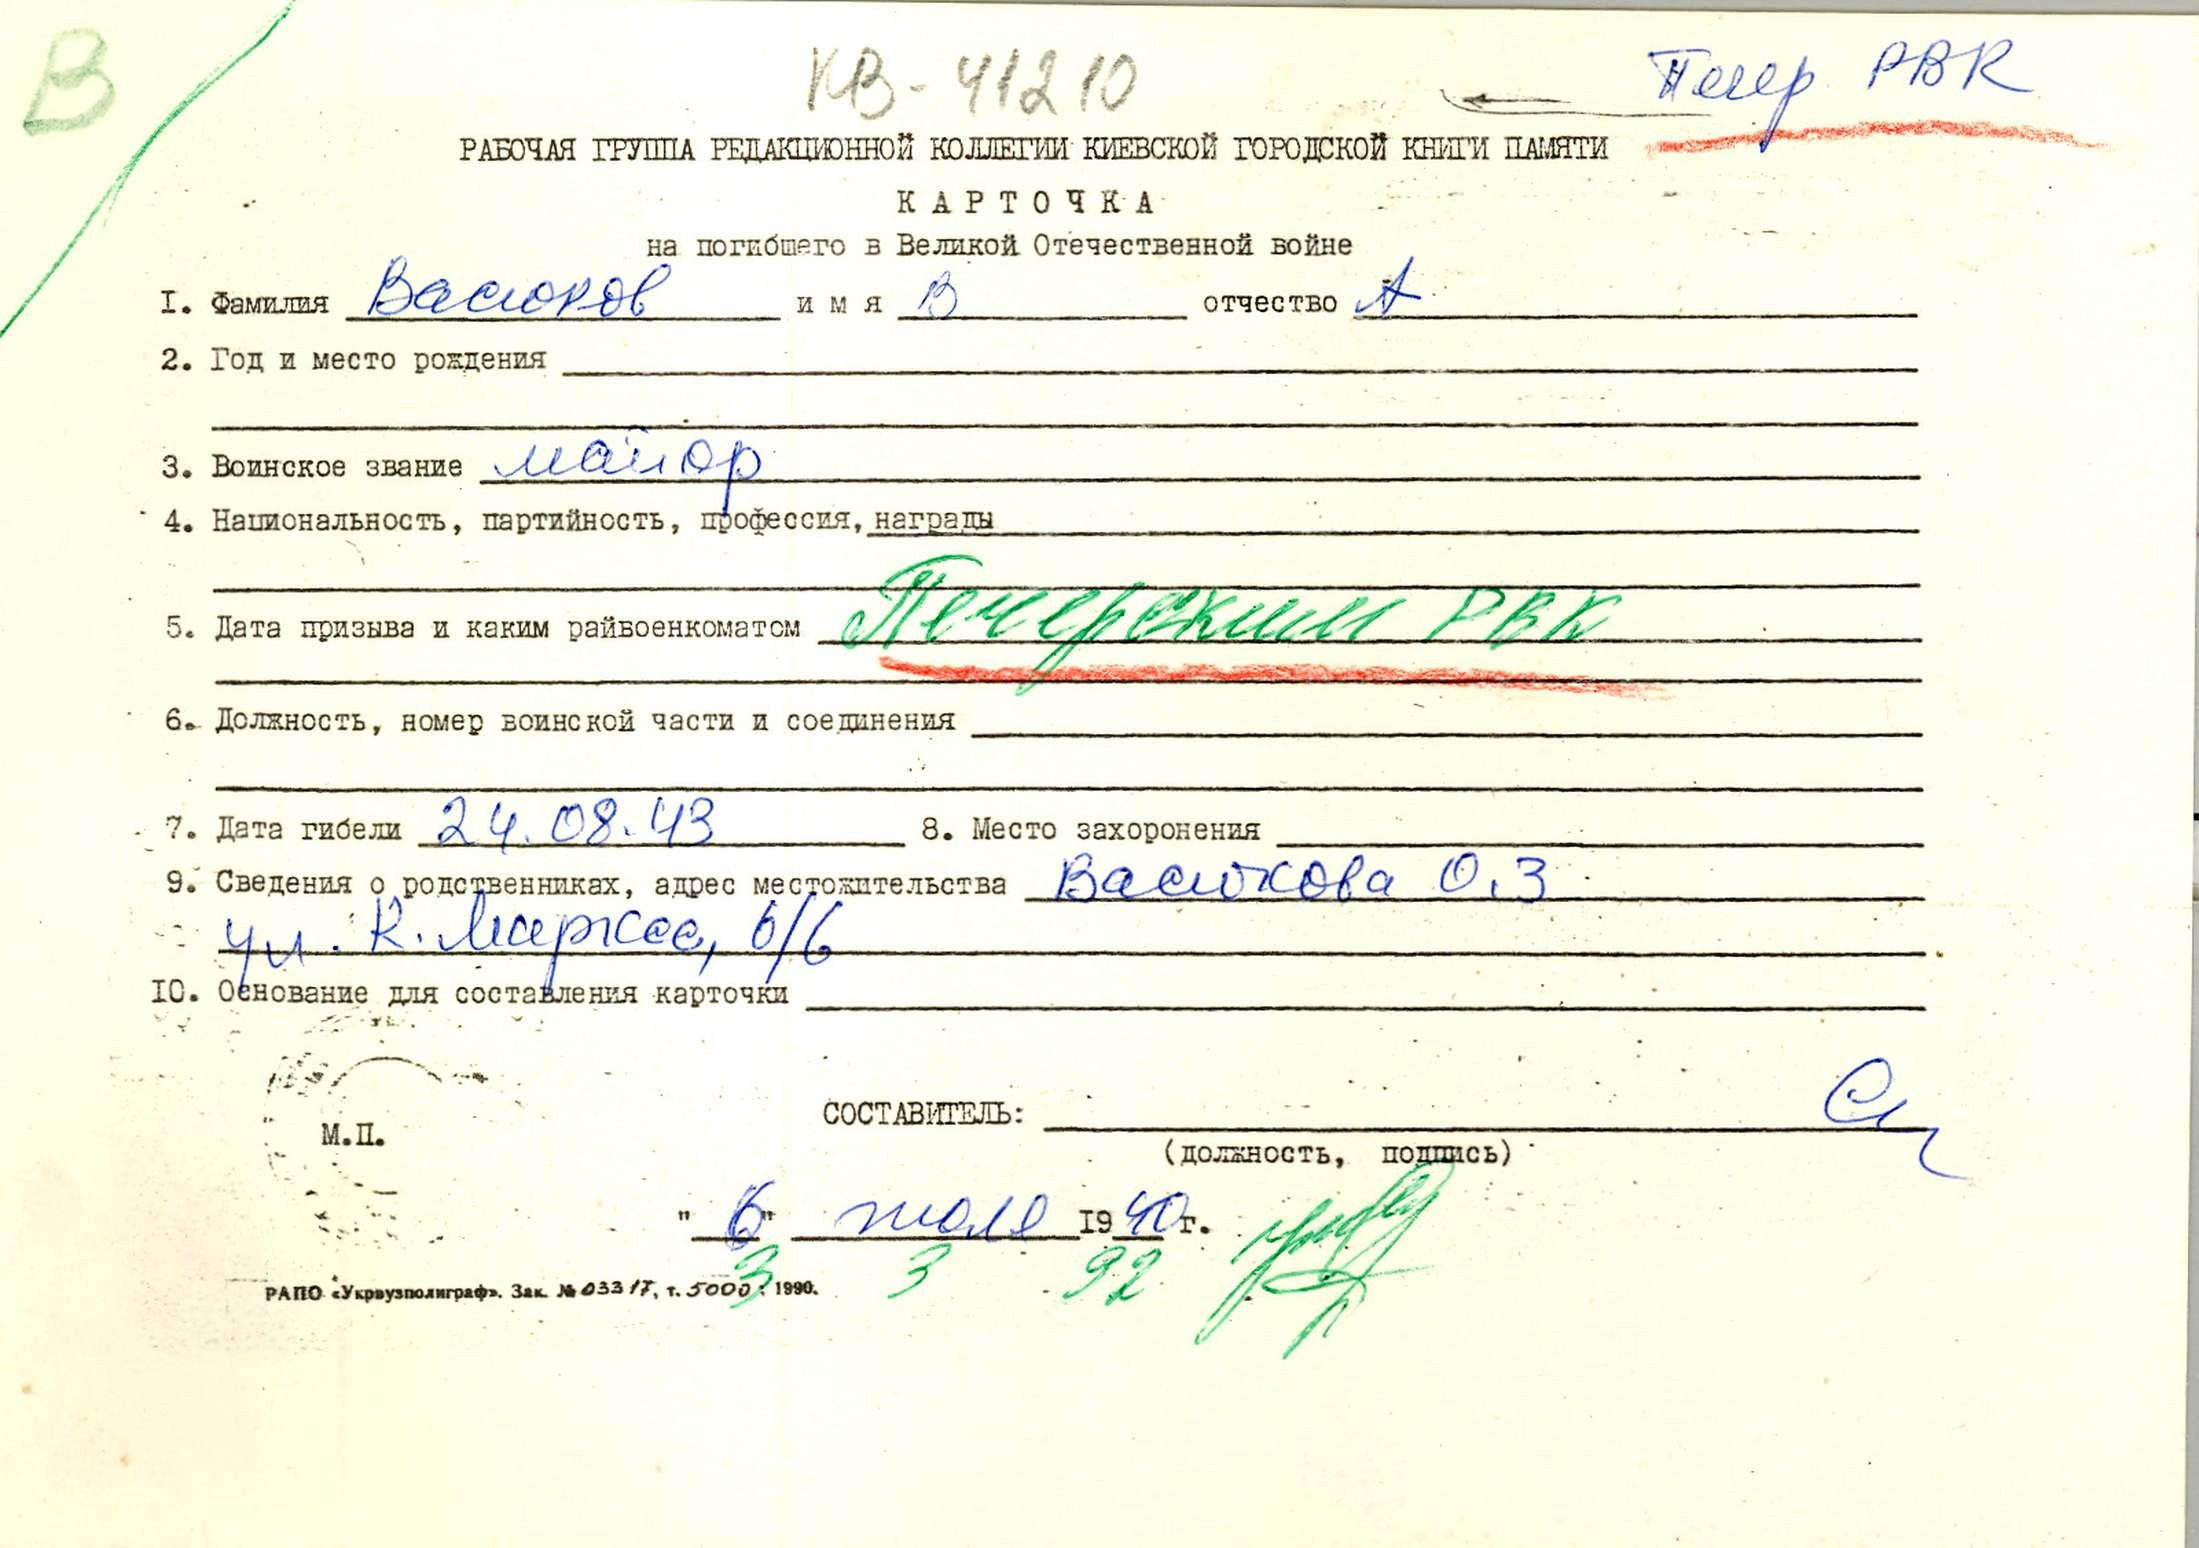 В
КВ-41210
Печер РВК
РАБОЧАЯ ГРУППА РЕДАКЦИОННОЙ КОЛЛЕГИИ КИЕВСКОЙ ГОРОДСКОЙ КНИГИ ПАМЯТИ
КАРТОЧКА
на погибшего в Великой Отечественной войне
1. Фамилия Васюков имя В отчество А
2. Год и место рождения
3. Воинское звание майор
4. Национальность, партийность, профессия, награды
5. Дата призыва и каким райвоенкоматом Печерским РВК
6. Должность, номер воинской части и соединения
7. Дата гибели 24.08.43 8. Место захоронения
9. Сведения о родственниках, адрес местожительства Васюкова О.З
ул. К. Маркса, 6/6
10. Основание для составления карточки
СОСТАВИТЕЛЬ:
М.П.
(должность, подпись)
"6" июля 1990 г.
3 3 92
РАПО «Укрвузполиграф». Зак. № 03317, т. 5000. 1990.